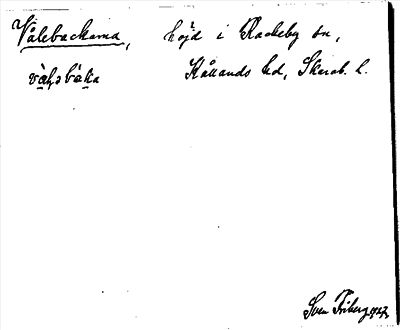 Vålebackarna, höjd i Rackeby sn,
Kållands hd, Skarab. l.
Sven Friberg 1927